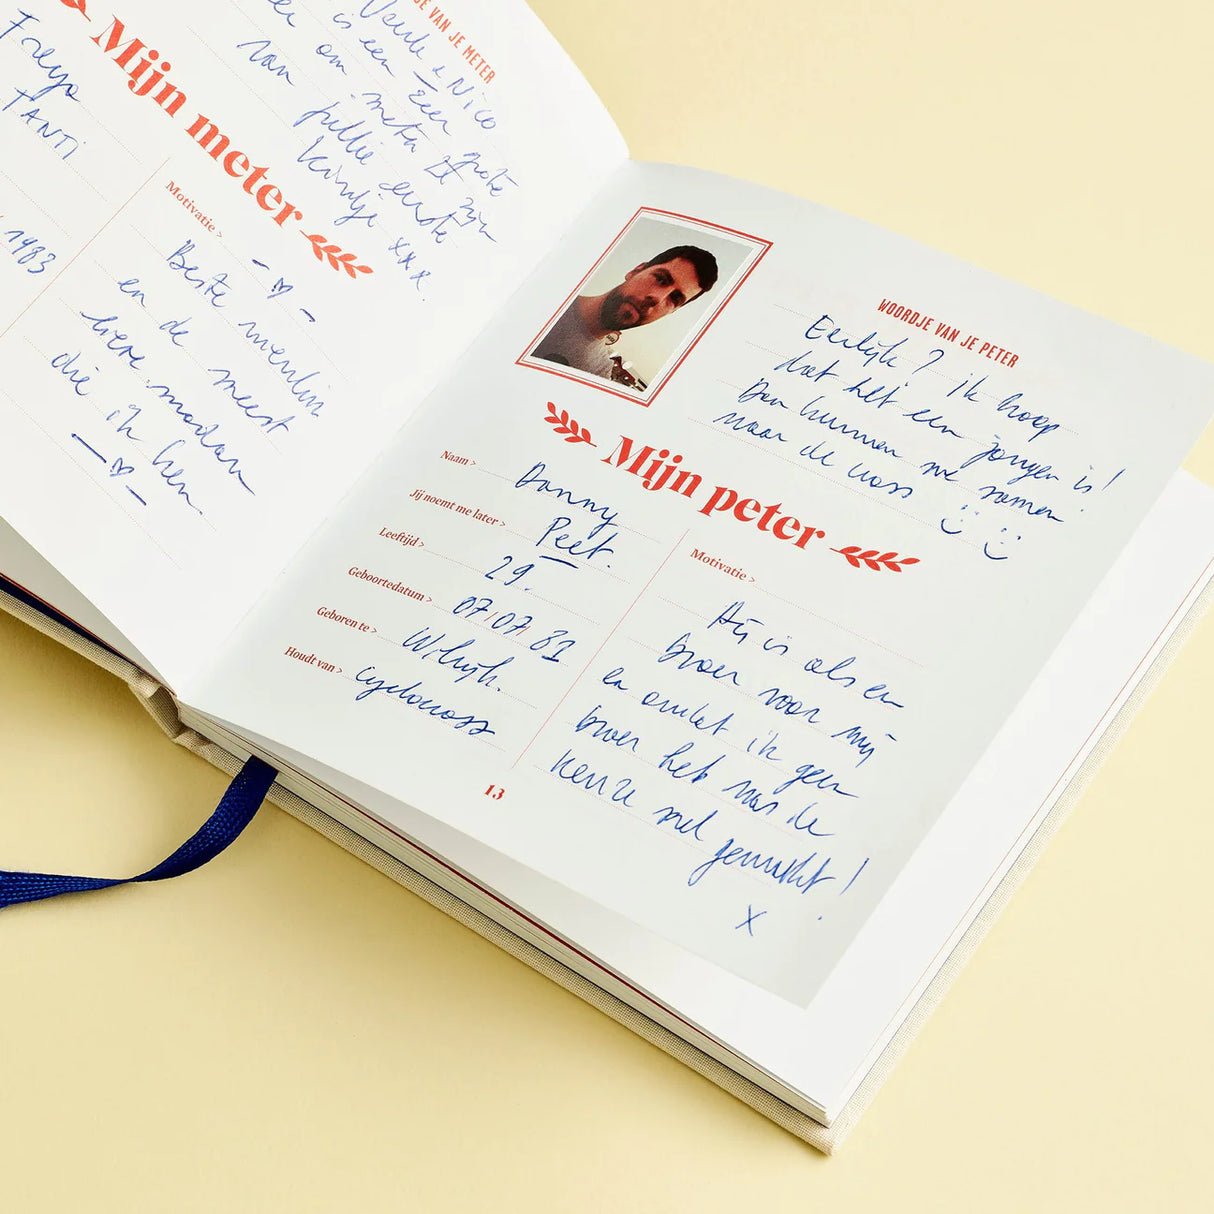 JE VAN JE METER
& Nico
is een Eer
om meter te zijn
van jullie eerste
kindje xxx.
Mijn meter
Freya
TANTI
1983
Motivatie >
Beste vriendin
en de meest
lieve madam
die ik ken.
WOORDJE VAN JE PETER
Eerlijk? ik hoop
dat het een jongen is!
Dan kunnen we samen
naar de cross
Mijn peter
Naam > Danny
Jij noemt me later > Peet.
Leeftijd > 29.
Geboortedatum > 07/07/81
Geboren te > Wilrijk.
Houdt van > cyclocross
Motivatie >
Hij is als een
broer voor mij
en omdat ik geen
broer heb was de
keuze snel
gemaakt!
X
13